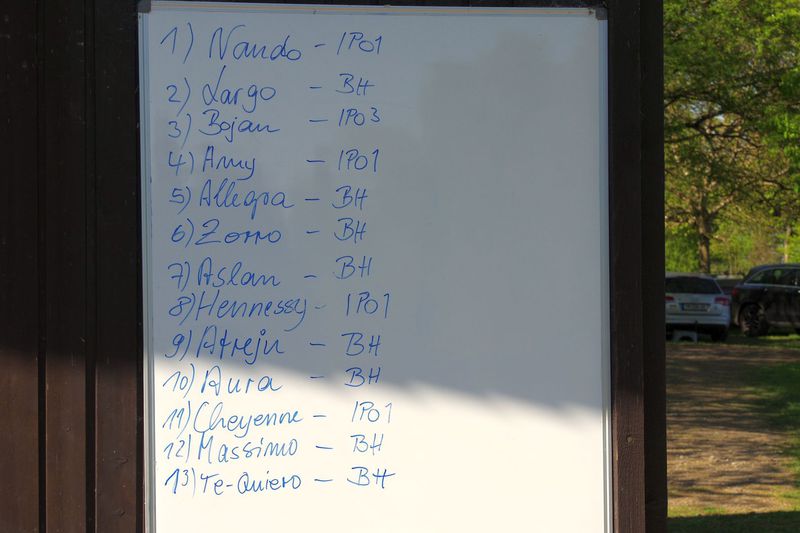 1) Nando - IPO1
2) Largo - BH
3) Bojan - IPO3
4) Amy - IPO1
5) Allegra - BH
6) Zorro - BH
7) Aslan - BH
8) Hennessy - IPO1
9) Atreju - BH
10) Aura - BH
11) Cheyenne - IPO1
12) Massimo - BH
13) Te-Quiero - BH